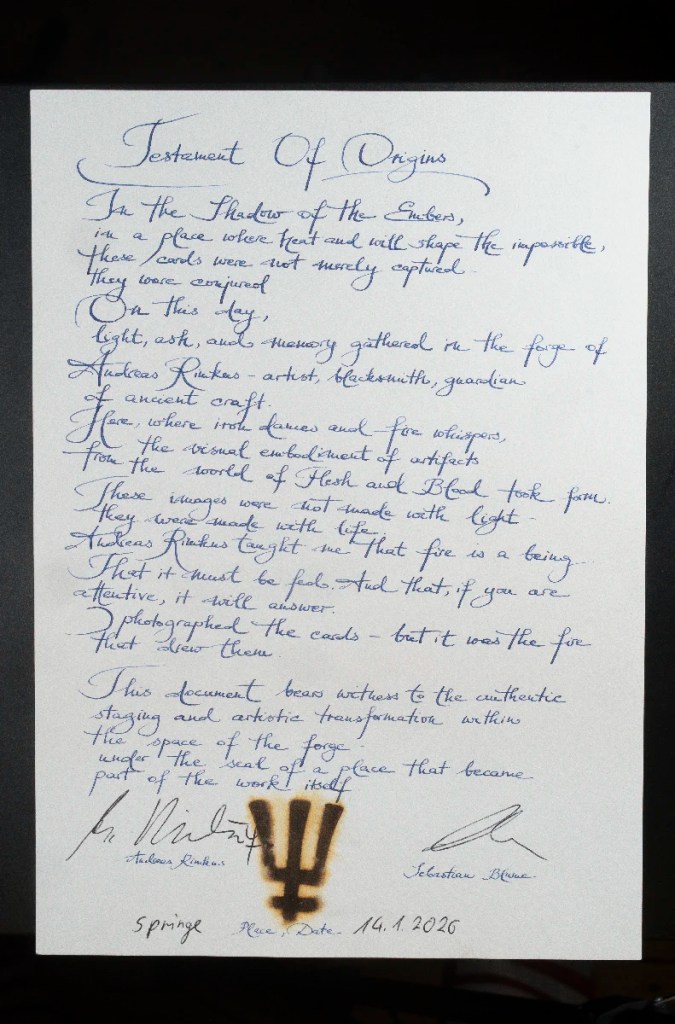 Testament Of Origins
In the Shadow of the Embers,
in a place where heat and will shape the impossible,
these cards were not merely captured -
they were conjured
On this day,
light, ash, and memory gathered in the forge of
Andreas Rimkus - artist, blacksmith, guardian
of ancient craft.
Here, where iron dances and fire whispers,
the visual embodiment of artifacts
from the world of Flesh and Blood took form.
These images were not made with light -
they were made with life.
Andreas Rimkus taught me that fire is a being
That it must be fed. And that, if you are
attentive, it will answer.
I photographed the cards - but it was the fire
that drew them.
This document bears witness to the authentic
staging and artistic transformation within
the space of the forge.
under the seal of a place that became
part of the work itself
Andreas Rimkus
Sebastian Blume
Springe Place, Date. 14.1.2026